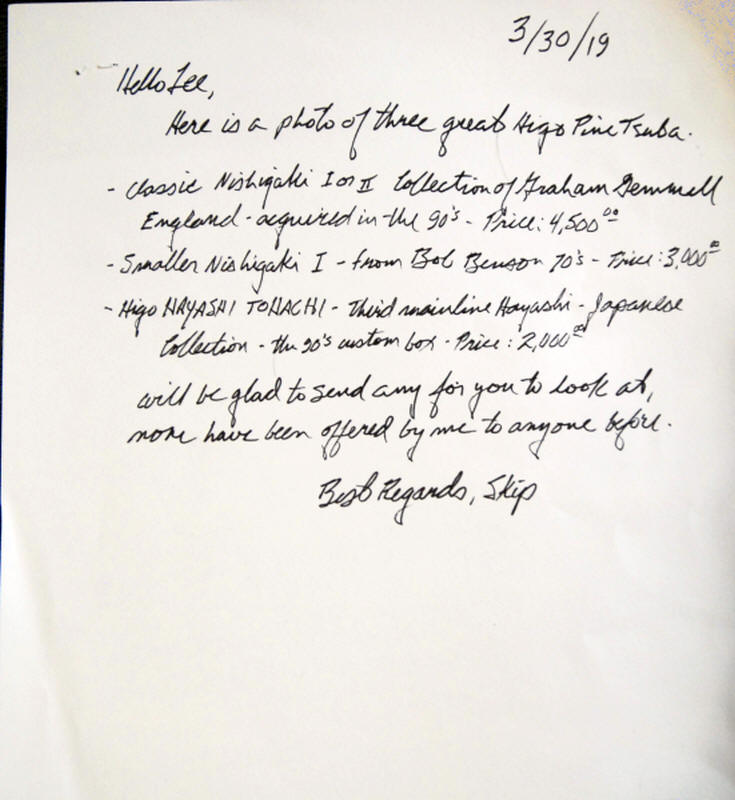 3/30/19
Hello Lee,
Here is a photo of three great Higo Pine Tsuba.
- Classic Nishigaki I or II Collection of Graham Gemmell
England - acquired in the 90's - Price: 4,500⁰⁰
- Smaller Nishigaki I - from Bob Benson 70's - Price: 3,000⁰⁰
- Higo HAYASHI TOHACHI - Third mainline Hayashi - Japanese
Collection - the 90's custom box - Price: 2,000⁰⁰
will be glad to send any for you to look at,
none have been offered by me to anyone before.
Best Regards, Skip